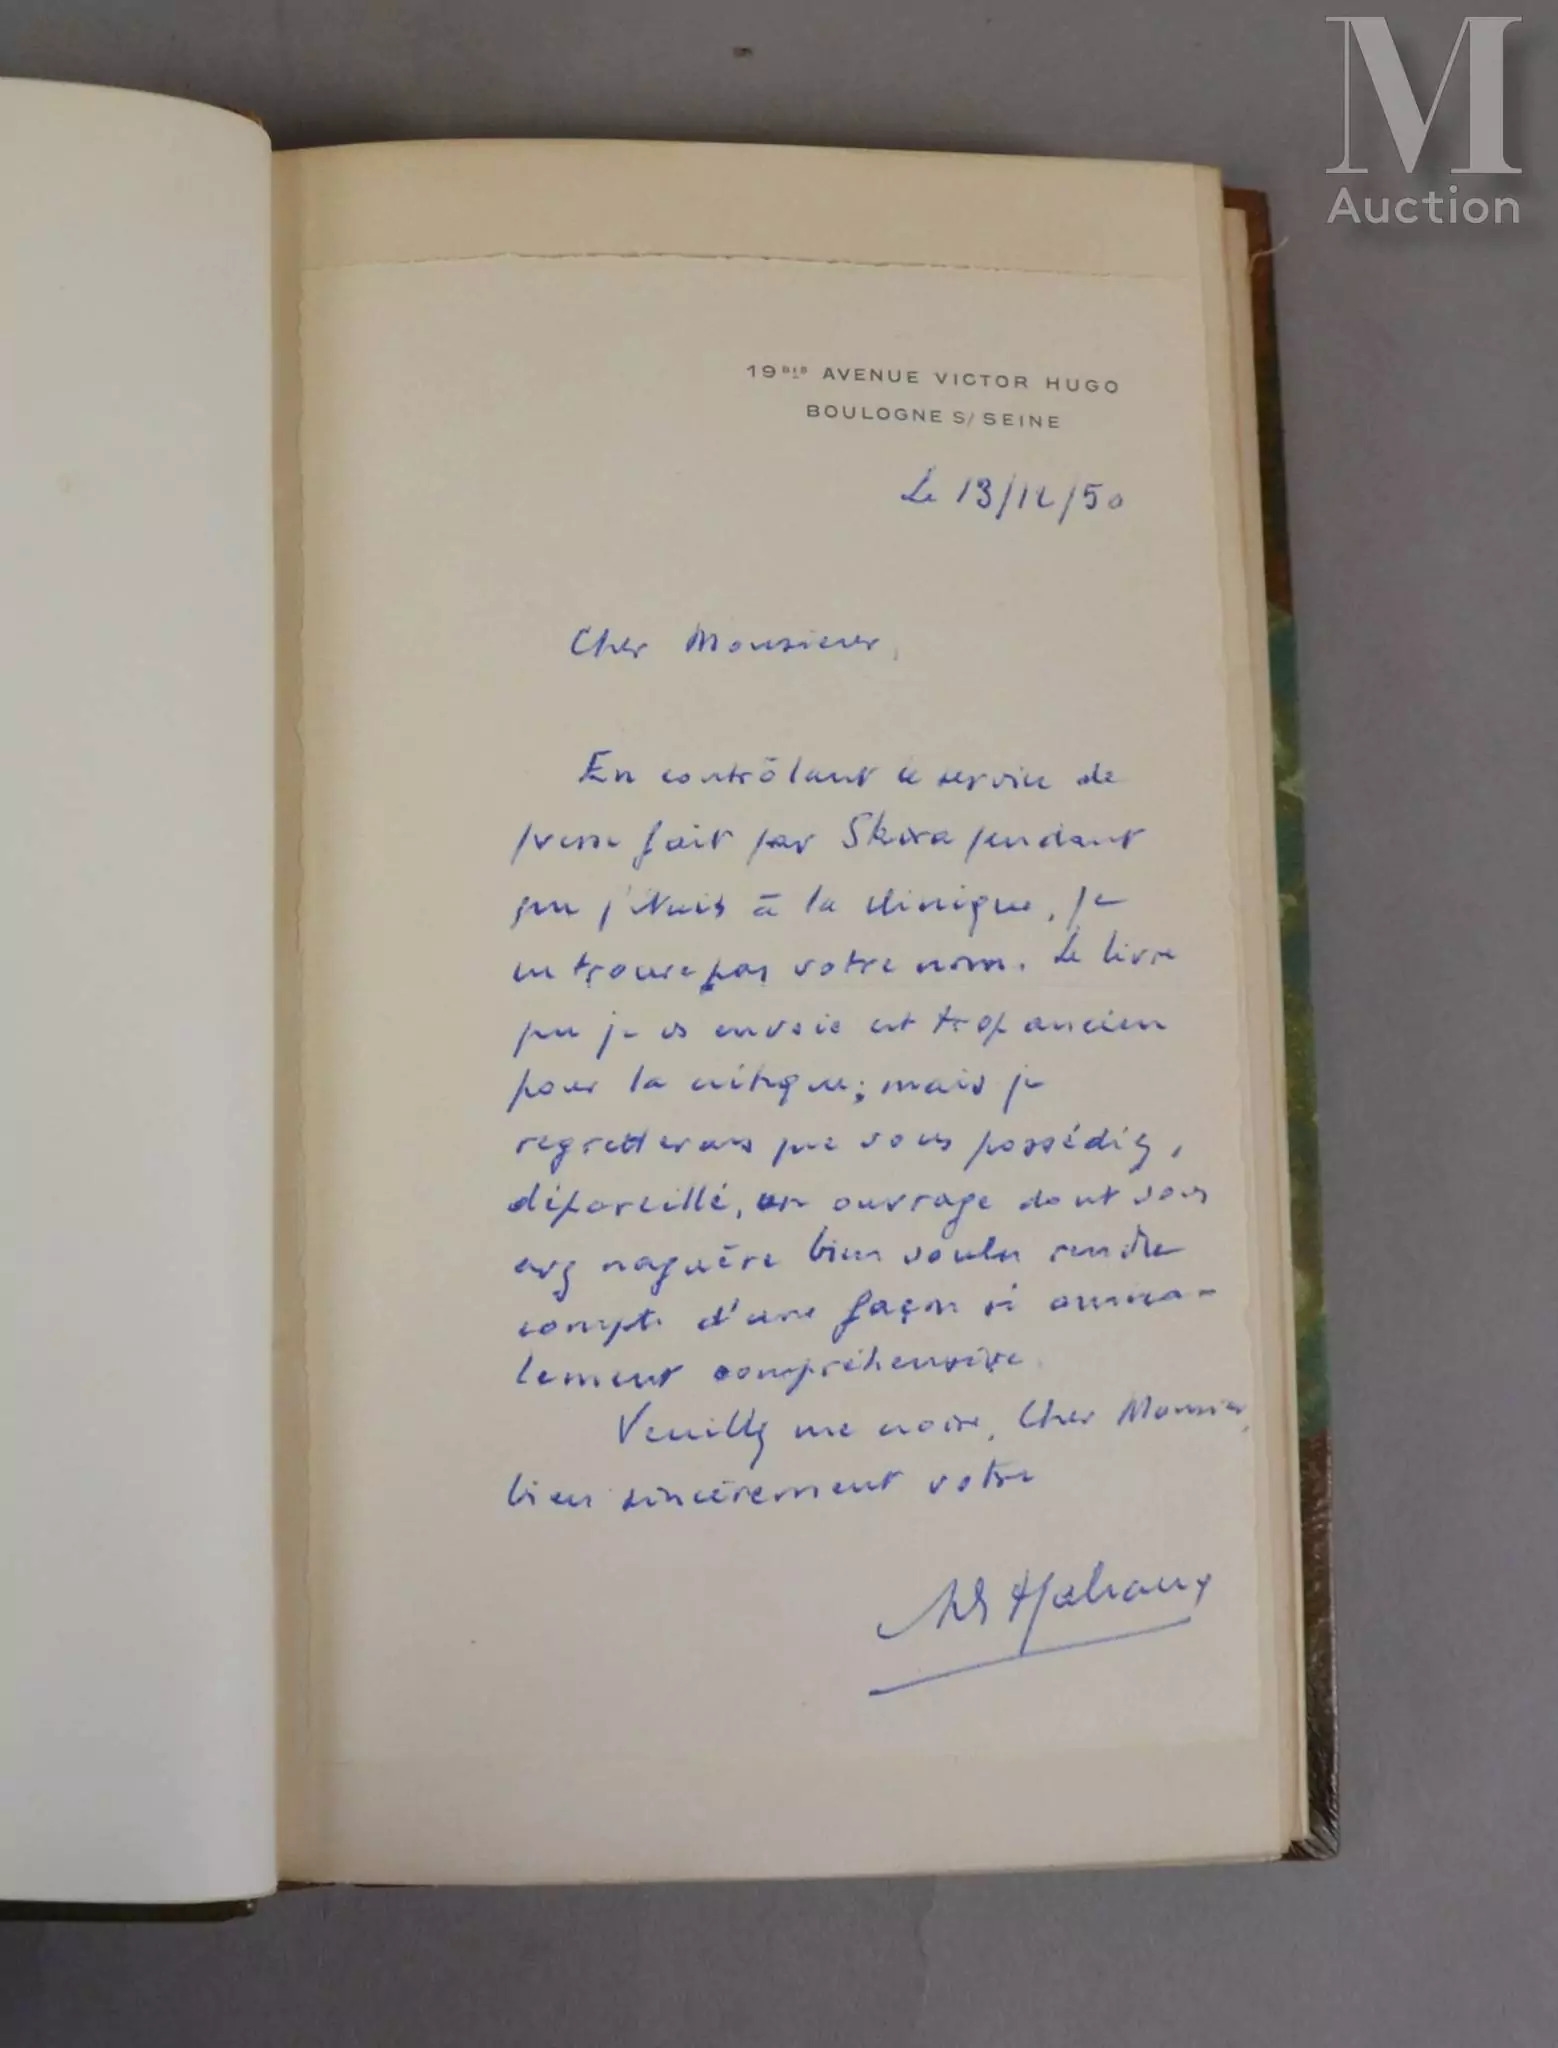 M
Auction
19BIS AVENUE VICTOR HUGO
BOULOGNE S/ SEINE
Le 13/12/50
Cher Monsieur,
En contrôlant le service de
presse fait par Skira pendant
que j'étais à la clinique, je
ne trouve pas votre nom. Le livre
que je vs envoie est trop ancien
pour la critique; mais je
regretterais que vous possédiez,
dépareillé, un ouvrage dont vous
avez naguère bien voulu rendre
compte d'une façon si anima-
lement compréhensive.
Veuillez me croire, Cher Monsieur,
bien sincèrement votre
Malraux